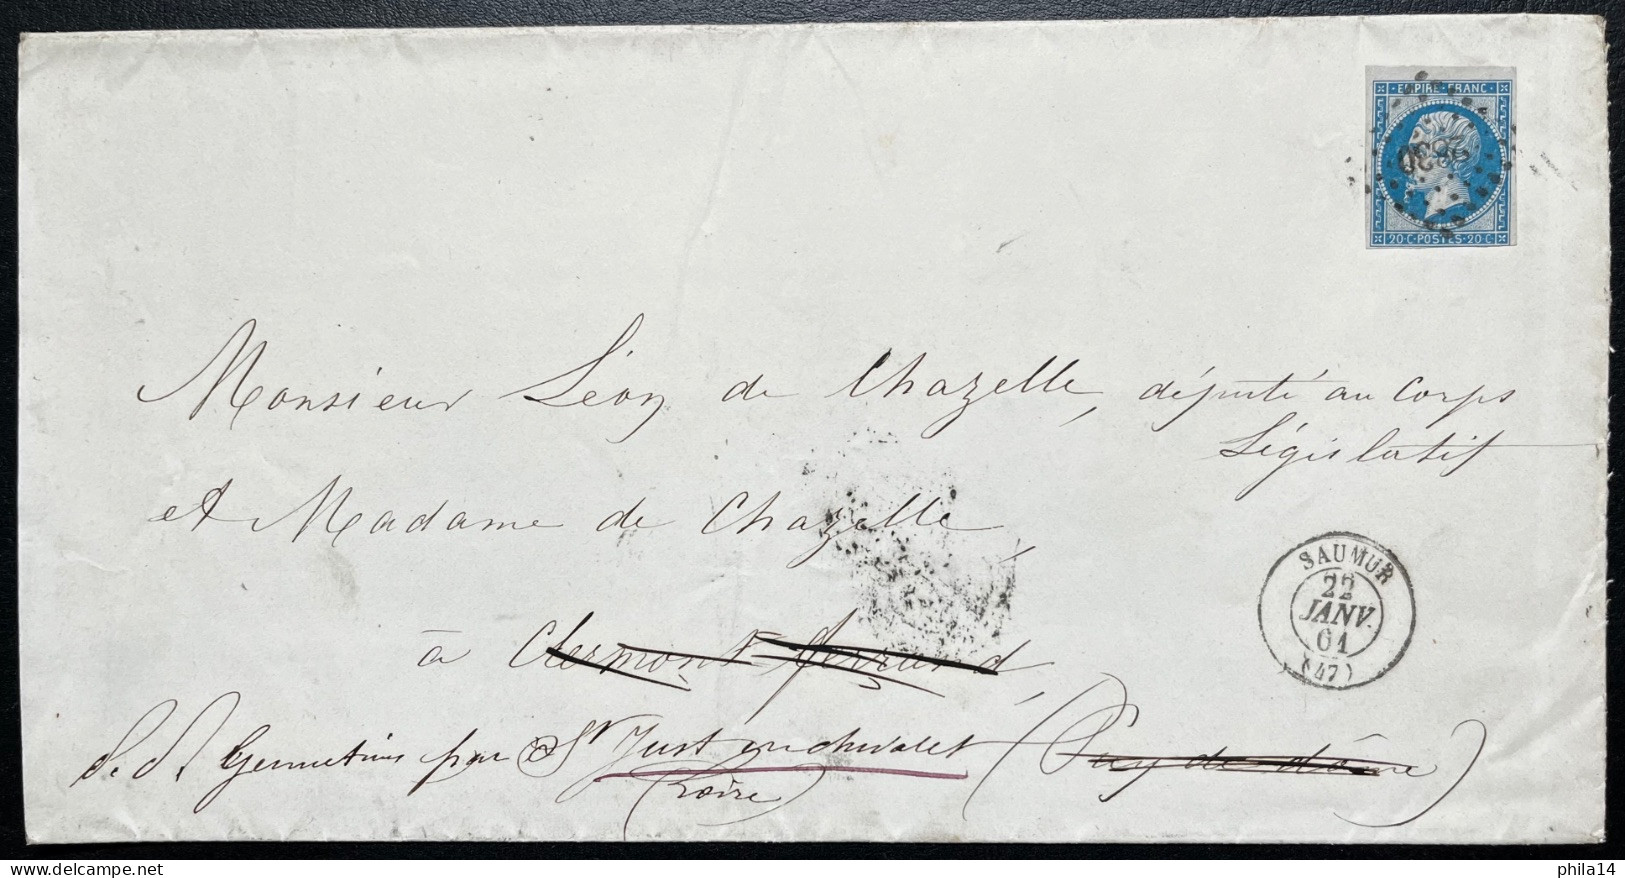 EMPIRE FRANC
20 C POSTES 20 C
Monsieur Léon de Chazelle, député au Corps
Législatif
et Madame de Chazelle,
SAUMUR
22
JANV.
61
(47)
à Clermont ferrand,
par St Just en chevalet (Puy de dôme)
(Loire)
phila14